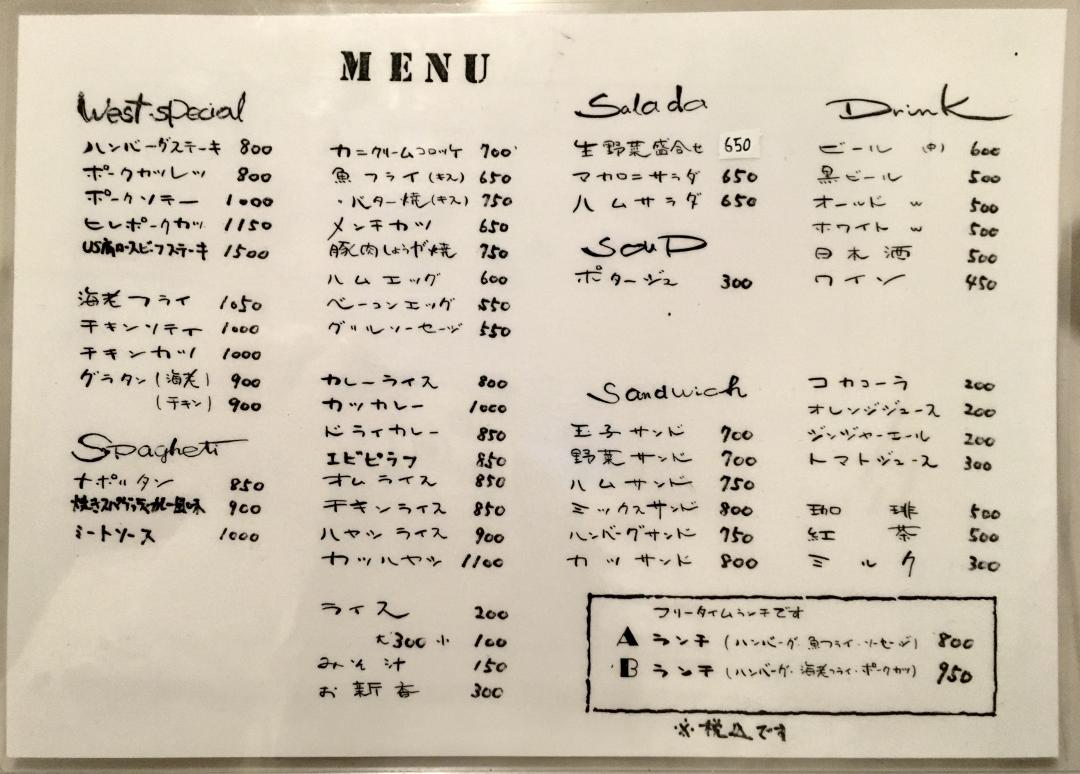 MENU
West.special
ハンバーグステーキ 800
ポークカツレツ 800
ポークソテー 1000
ヒレポークカツ 1150
US肩ロースビーフステーキ 1500
海老フライ 1050
チキンソティ 1000
チキンカツ 1000
グラタン(海老) 900
(チキン) 900
Spagheti
ナポリタン 850
焼きスパゲッティカレー風味 900
ミートソース 1000
カニクリームコロッケ 700
魚フライ(キス) 650
・バター焼(キス) 750
メンチカツ 650
豚肉しょうが焼 750
ハムエッグ 600
ベーコンエッグ 550
グリルソーセージ 550
カレーライス 800
カツカレー 1000
ドライカレー 850
エビピラフ 850
オムライス 850
チキンライス 850
ハヤシライス 900
カツハヤシ 1100
ライス 200
大300 小 100
みそ汁 150
お新香 300
Salada
生野菜盛合せ 650
マカロニサラダ 650
ハムサラダ 650
Soup
ポタージュ 300
Sandwich
玉子サンド 700
野菜サンド 700
ハムサンド 750
ミックスサンド 800
ハンバーグサンド 750
カツサンド 800
Drink
ビール (中) 600
黒ビール 500
オールド w 500
ホワイト w 500
日本酒 500
ワイン 450
コカコーラ 200
オレンジジュース 200
ジンジャーエール 200
トマトジュース 300
珈琲 500
紅茶 500
ミルク 300
フリータイムランチです
A ランチ (ハンバーグ・魚フライ・ソーセージ) 800
B ランチ (ハンバーグ・海老フライ・ポークカツ) 950
※税込です